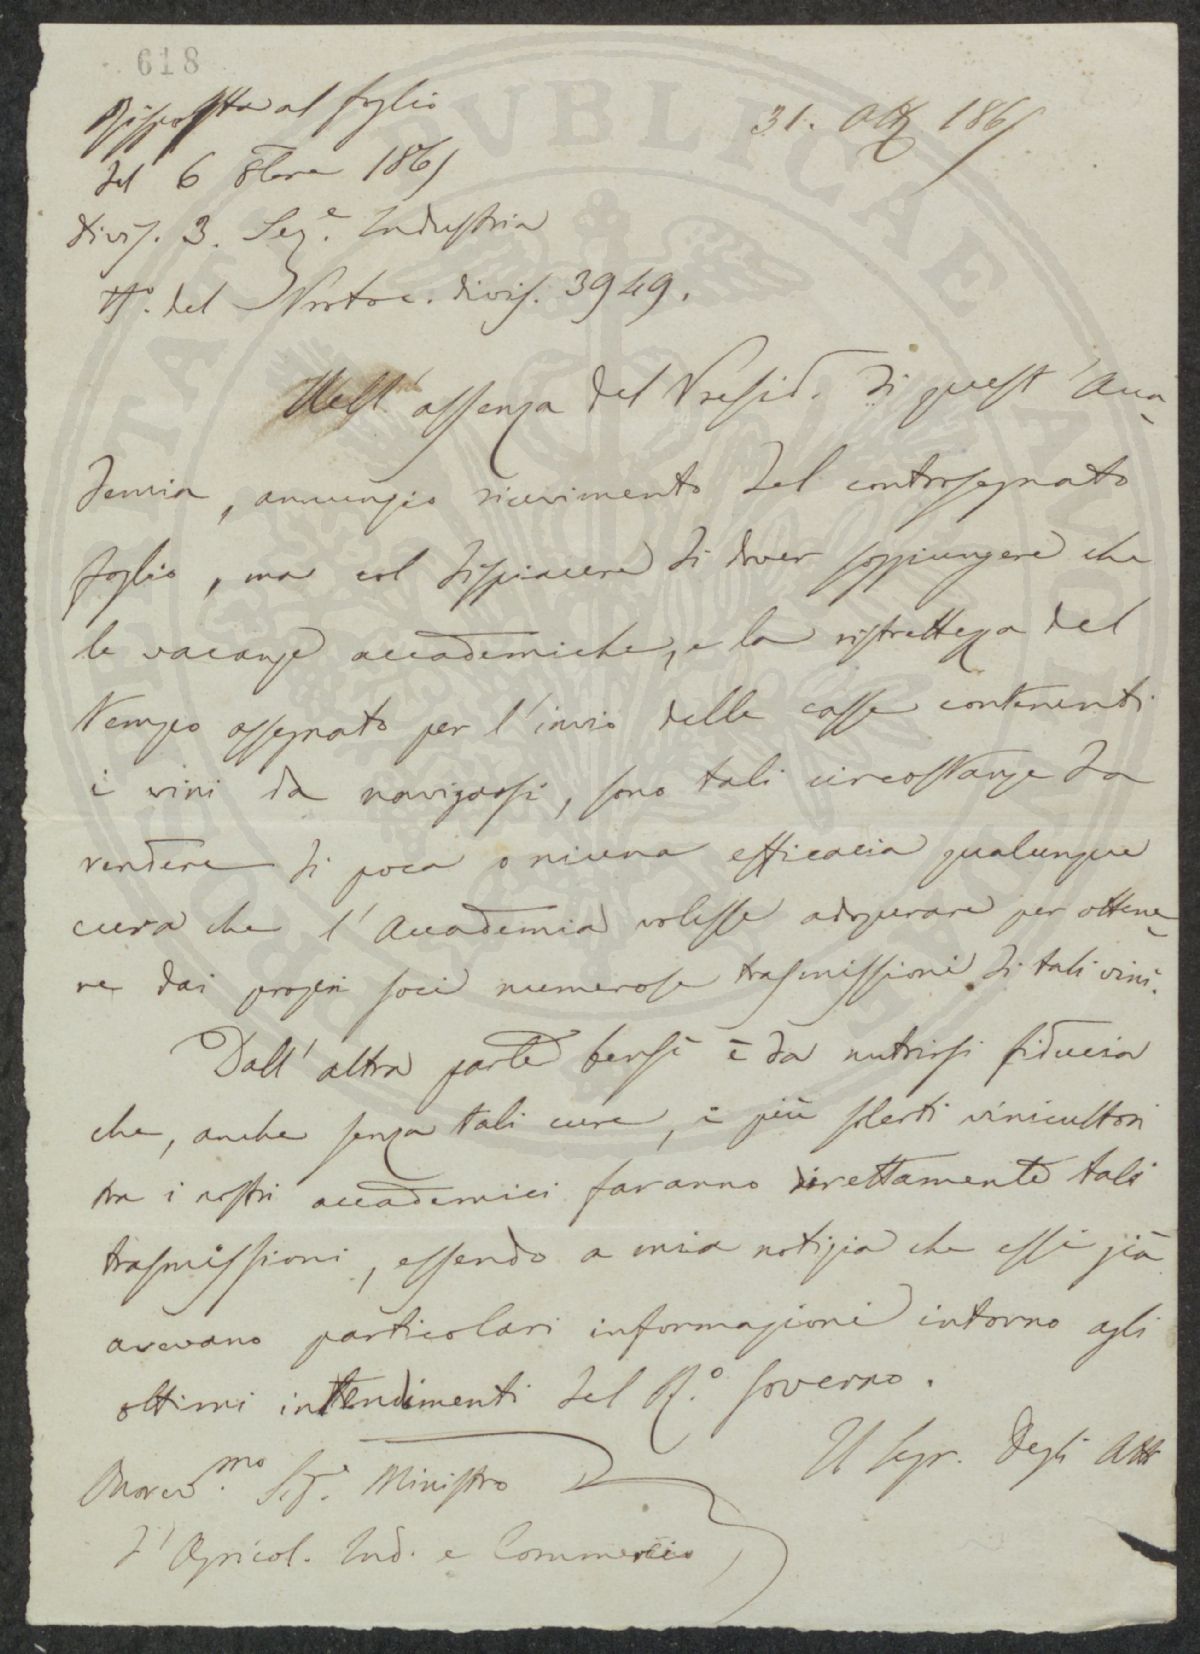 618
Risposta al foglio
31. Ott 1865
del 6 8bre 1865
Divis. 3. Sez.e Industria
N°. del Protoc. divis. 3949.
Nell'assenza del Presid. di quest'Acca-
demia, annunzio ricevimento del controsegnato
foglio, ma col dispiacere di dover soggiungere che
le vacanze accademiche, e la ristrettezza del
tempo assegnato per l'invio delle casse contenenti
i vini da navigarsi, sono tali circostanze da
rendere di poca o niuna efficacia qualunque
cura che l'Accademia volesse adoperare per ottene-
re dai propri soci numerose trasmissioni di tali vini.
Dall'altra parte bensì è da nutrirsi fiducia
che, anche senza tali cure, i più solerti vinicultori
tra i nostri accademici faranno direttamente tali
trasmissioni, essendo a mia notizia che essi già
avevano particolari informazioni intorno agli
ottimi intendimenti del R.° Governo.
Il Segr. degli Atti
Onorev.mo Sig.e Ministro
d'Agricol. Ind. e Commercio